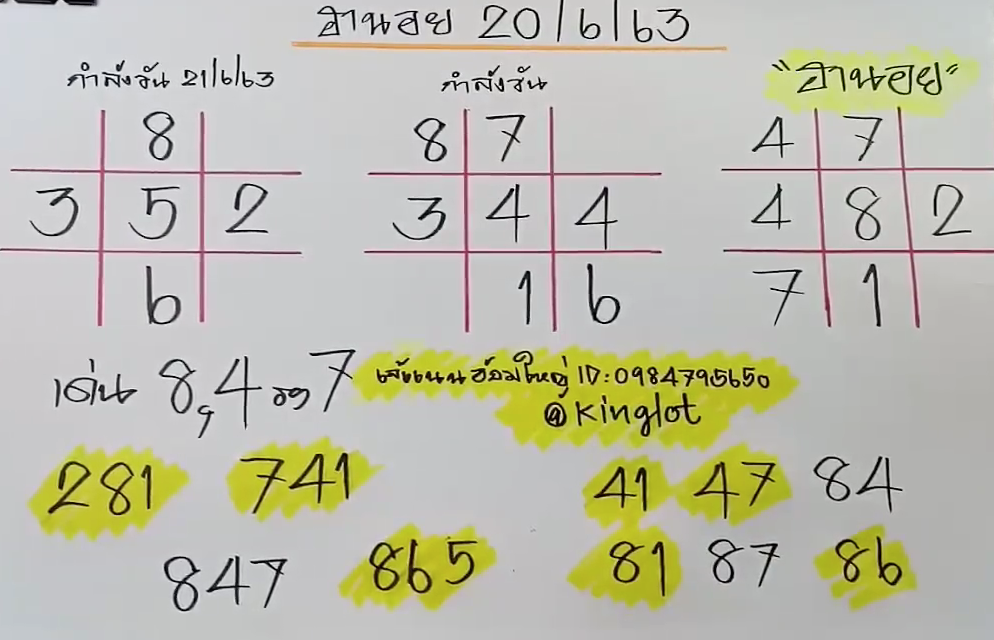 ฮานอย 20/6/63
กำลังวัน 21/6/63
8
3 5 2
6
กำลังวัน
8 7
3 4 4
1 6
"ฮานอย"
4 7
4 8 2
7 1
เด่น 8,4 รอง 7
ID:0984795650
@kinglot
281 741
847 865
41 47 84
81 87 86